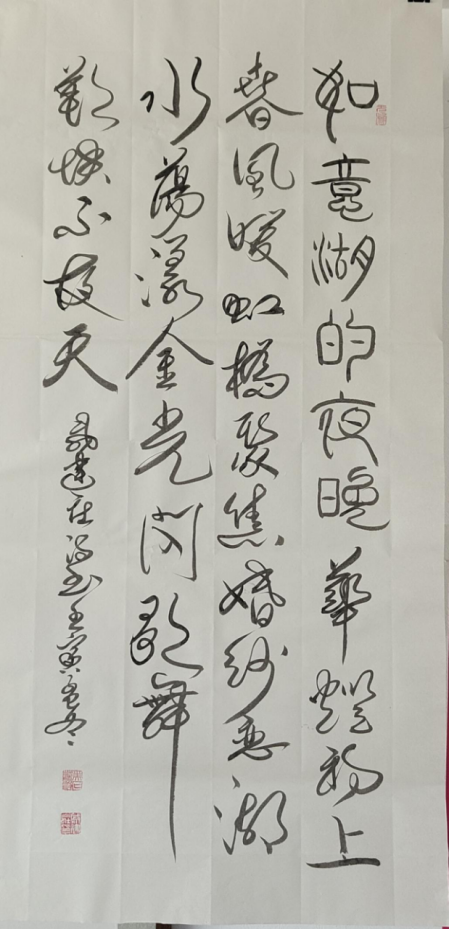 如意湖的夜晚 華燈初上
春風暖虹橋聚焦婚紗恋湖
水蕩漾金光闪歌舞
歡快不夜天
壬寅